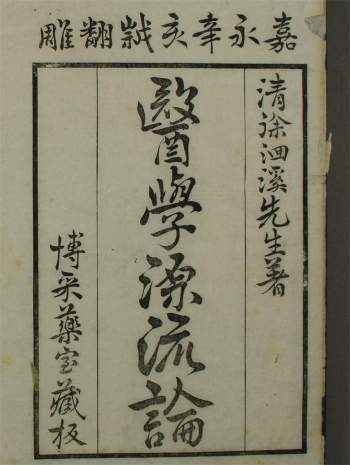 嘉永辛亥㱏翻雕
清徐洄溪先生著
醫學源流論
博采藥室藏板